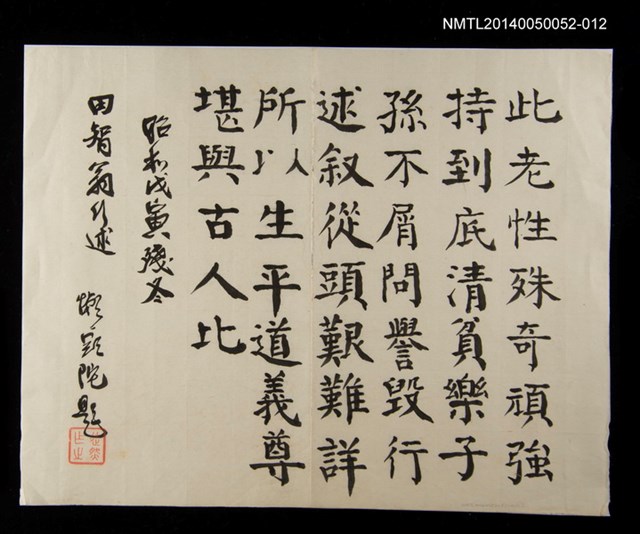 NMTL20140050052-012
此老性殊奇頑強
持到底清貧樂子
孫不屑問譽毀行
述敘從頭艱難詳
所以生平道義尊
堪與古人比
昭和戊寅殘冬
田智翁行述
題